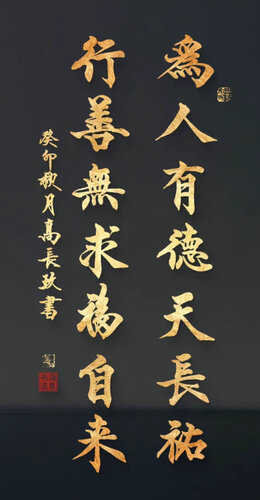 為人有德天長祐
行善無求福自来
癸卯秋月高長玫書